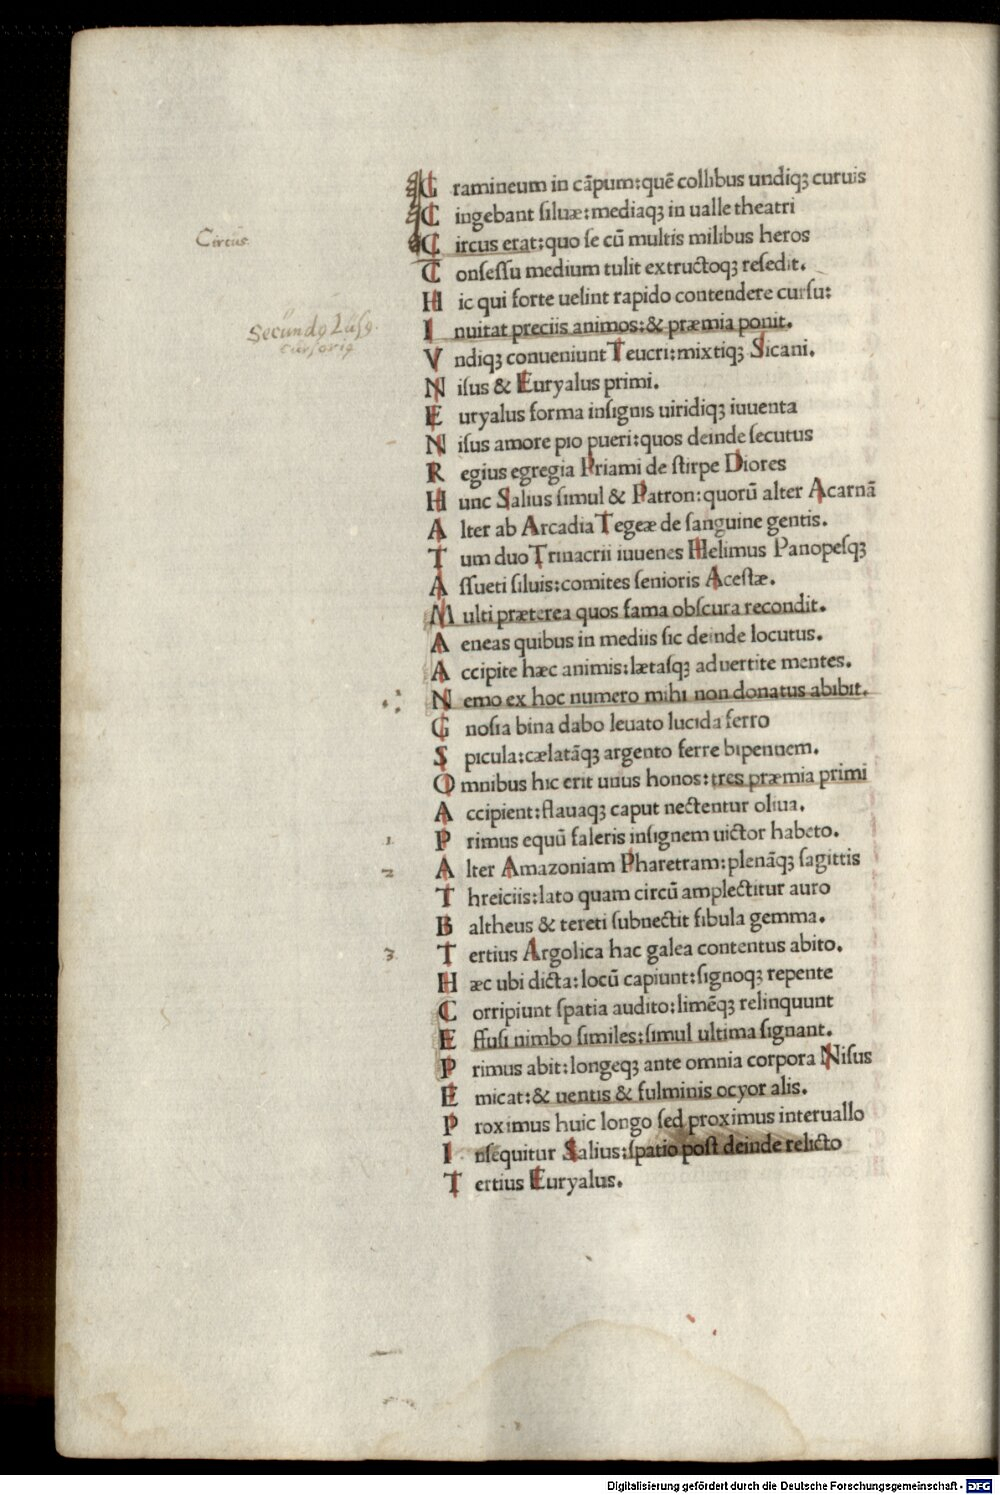 G ramineum in cãpum:quẽ collibus undiqꝫ curuis
C ingebant ſiluæ:mediaqꝫ in ualle theatri
Circus
C ircus erat:quo ſe cũ multis milibus heros
C onſeſſu medium tulit extructoqꝫ reſedit.
H ic qui forte uelint rapido contendere curſu:
Secundꝯ Luſꝯ
I nuitat preciis animos:& præmia ponit.
curſoriꝯ
V ndiqꝫ conueniunt Teucri:mixtiqꝫ Sicani.
N iſus & Euryalus primi.
E uryalus forma inſignis uiridiqꝫ iuuenta
N iſus amore pio pueri:quos deinde ſecutus
R egius egregia Priami de ſtirpe Diores
H unc Salius ſimul & Patron:quorũ alter Acarnã
A lter ab Arcadia Tegeæ de ſanguine gentis.
T um duo Trinacrii iuuenes Helimus Panopeſqꝫ
A ſſueti ſiluis:comites ſenioris Aceſtæ.
M ulti præterea quos fama obſcura recondit.
A eneas quibus in mediis ſic deinde locutus.
A ccipite hæc animis:lætaſqꝫ aduertite mentes.
N emo ex hoc numero mihi non donatus abibit.
G noſia bina dabo leuato lucida ferro
S picula:cælatãqꝫ argento ferre bipennem.
O mnibus hic erit unus honos:tres præmia primi
A ccipient:flauaqꝫ caput nectentur oliua.
1. P rimus equũ faleris inſignem uictor habeto.
2 A lter Amazoniam Pharetram:plenãqꝫ ſagittis
T hreiciis:lato quam circũ amplectitur auro
B altheus & tereti ſubnectit fibula gemma.
3 T ertius Argolica hac galea contentus abito.
H æc ubi dicta:locũ capiunt:ſignoqꝫ repente
C orripiunt ſpatia audito:limẽqꝫ relinquunt
E ffuſi nimbo ſimiles:ſimul ultima ſignant.
P rimus abit:longeqꝫ ante omnia corpora Niſus
E micat:& uentis & fulminis ocyor alis.
P roximus huic longo ſed proximus interuallo
I nſequitur Salius:ſpatio poſt deinde relicto
T ertius Euryalus.
Digitalisierung gefördert durch die Deutsche Forschungsgemeinschaft - DFG